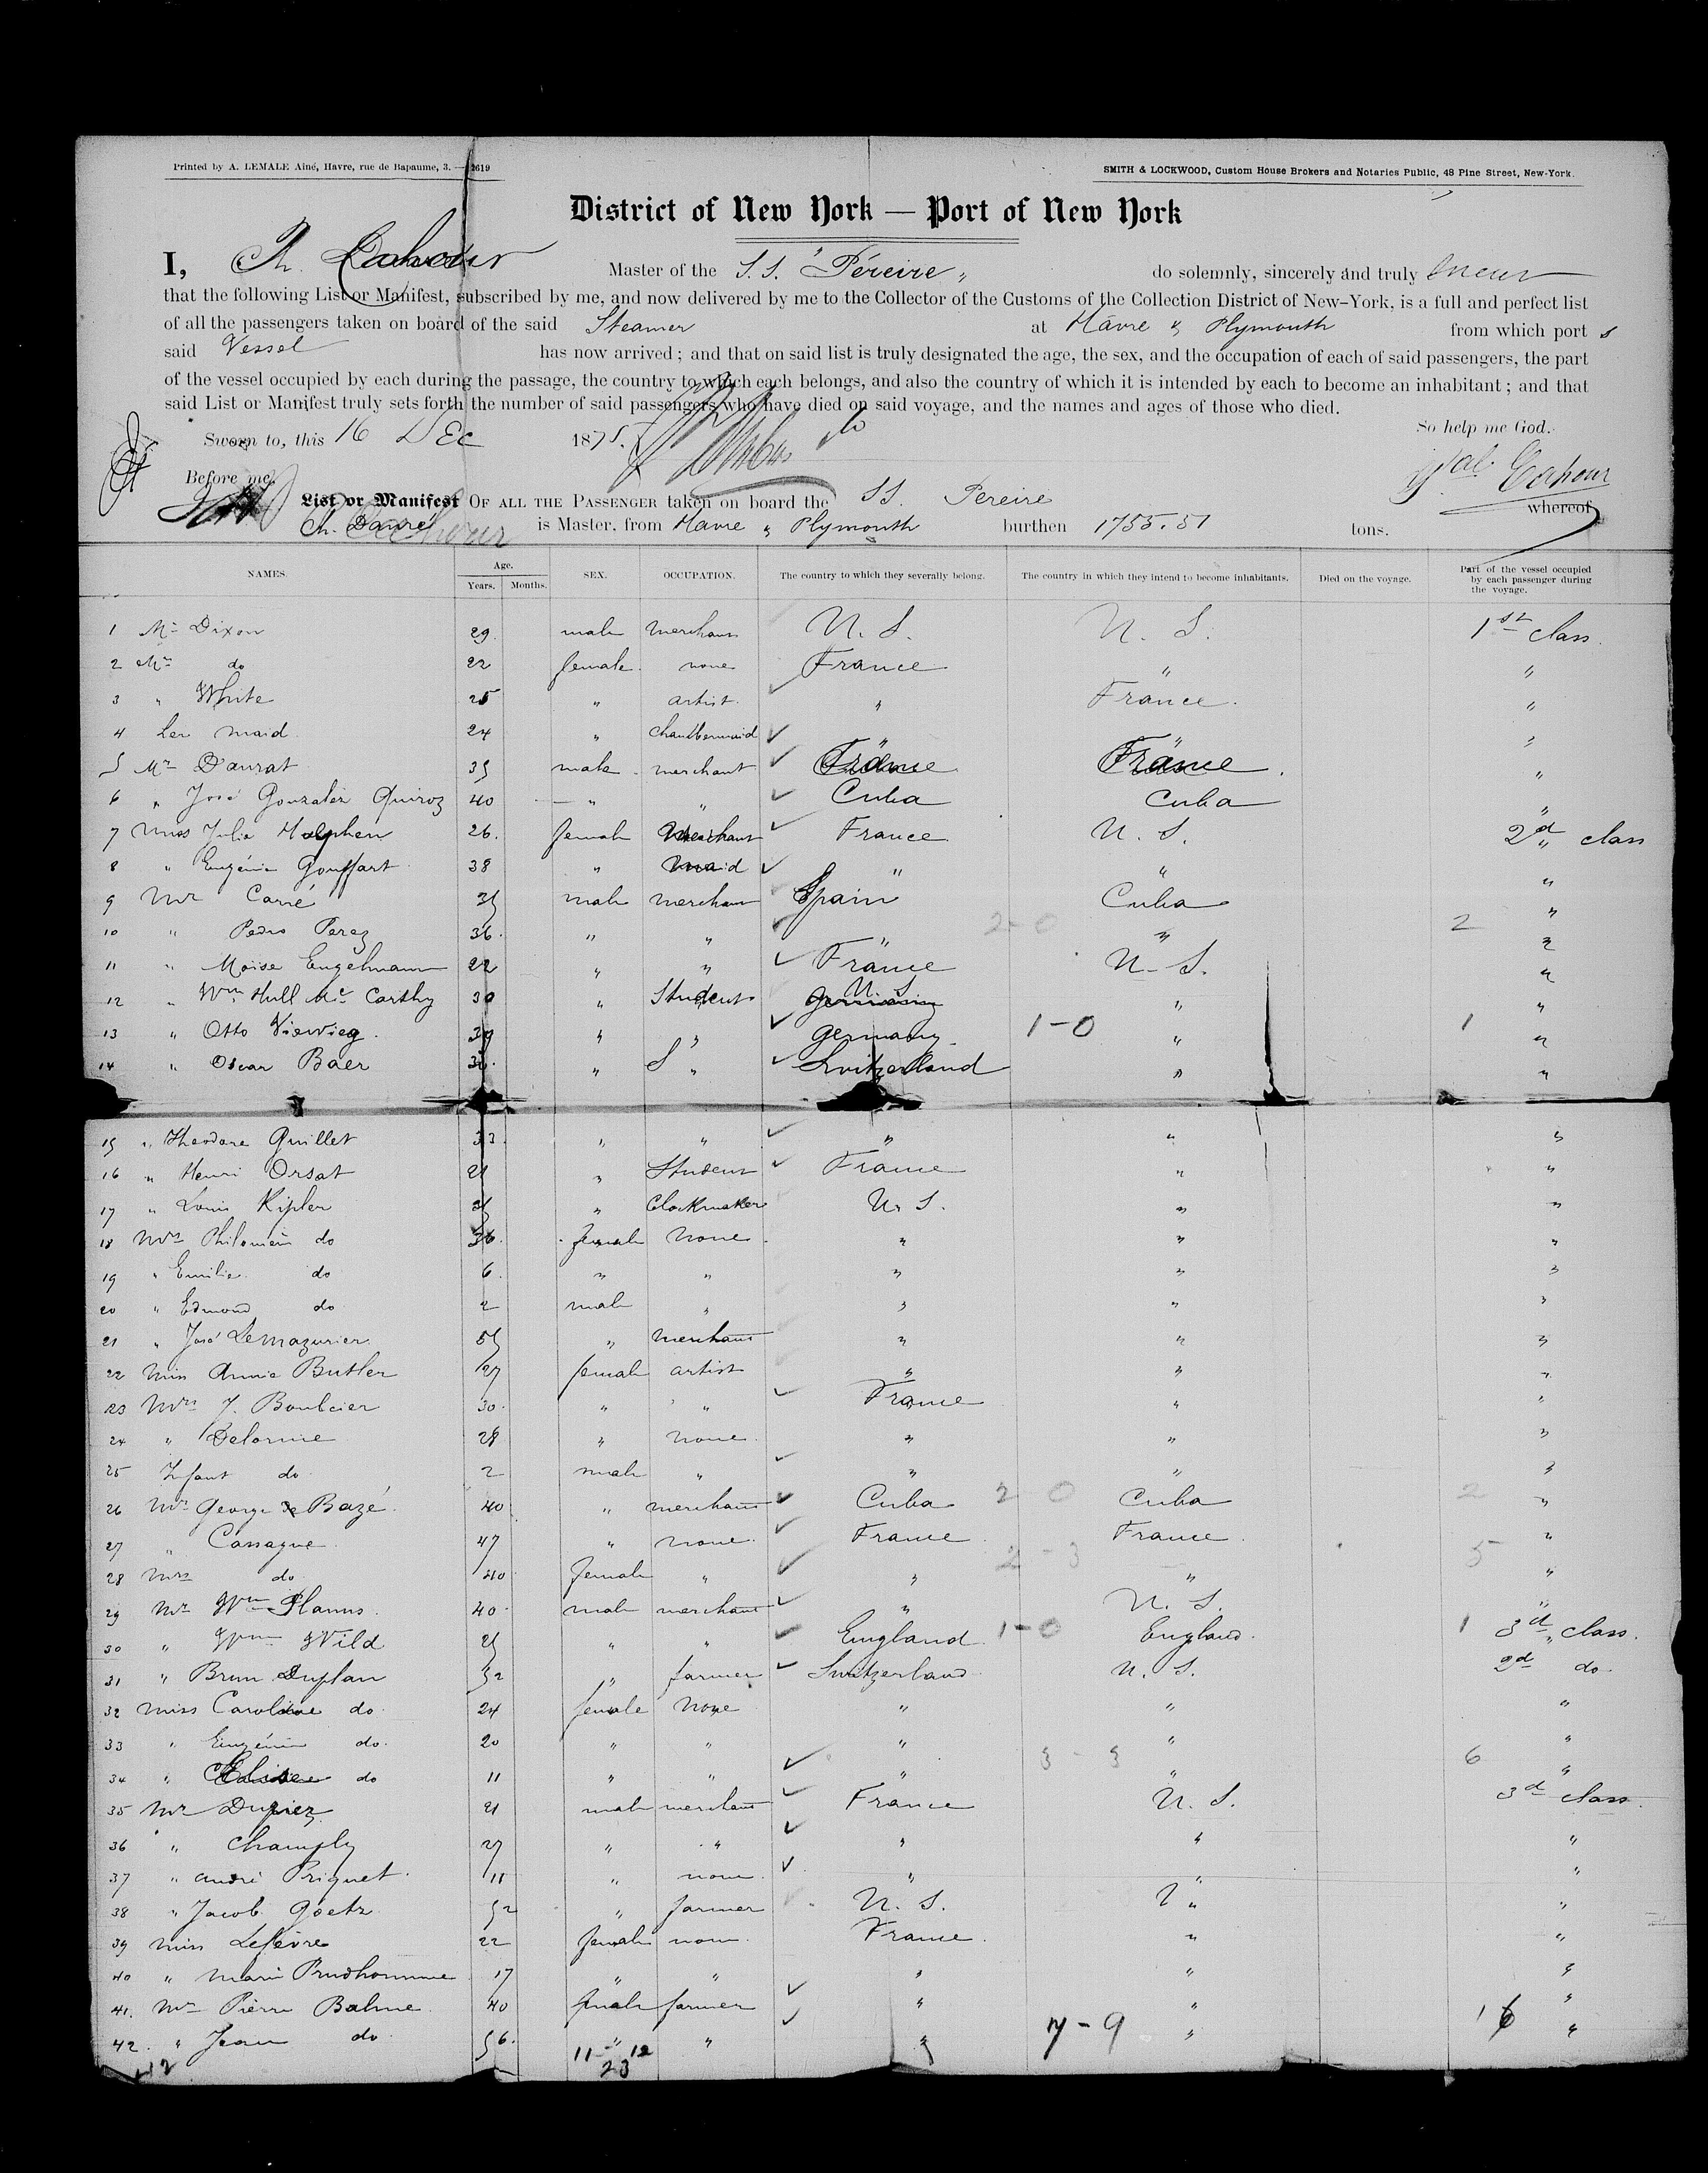 Printed by A. LEMALE Aîné, Havre, rue de Bapaume, 3. — 2619
SMITH & LOCKWOOD, Custom House Brokers and Notaries Public, 48 Pine Street, New-York.
District of New York — Port of New York
I, Master of the S.S. "Péreire" do solemnly, sincerely and truly swear
that the following List or Manifest, subscribed by me, and now delivered by me to the Collector of the Customs of the Collection District of New-York, is a full and perfect list
of all the passengers taken on board of the said Steamer at Havre & Plymouth from which port s
said Vessel has now arrived; and that on said list is truly designated the age, the sex, and the occupation of each of said passengers, the part
of the vessel occupied by each during the passage, the country to which each belongs, and also the country of which it is intended by each to become an inhabitant; and that
said List or Manifest truly sets forth the number of said passengers who have died on said voyage, and the names and ages of those who died.
Sworn to, this 16 Dec 1875. So help me God.
Before me,
List or Manifest OF ALL THE PASSENGER taken on board the SS. Pereire whereof
is Master, from Havre & Plymouth burthen 1755.51 tons.
NAMES. Age. Years. Months. SEX. OCCUPATION. The country to which they severally belong. The country in which they intend to become inhabitants. Died on the voyage. Part of the vessel occupied by each passenger during the voyage.
1 Mr Dixon 29. male merchant U. S. U. S. 1st class.
2 Mrs do 22 female none France " "
3 " White 25 " artist " France. "
4 her maid 24 " chambermaid " " "
5 Mr Daurat 35 male merchant France France. "
6 " José Gonzalez Quiroz 40 " " Cuba Cuba "
7 Miss Julie Halphen 26. female Merchant France U. S. 2d class
8 " Eugénie Gouffart 38 " Maid " " "
9 Mr Carré 35 male merchant Spain Cuba "
10 " Pedro Perez 36. " " " " 2-0 2 "
11 " Moise Engelmann 22 " " France U. S. "
12 " Wm Hull Mc Carthy 30 " Student U. S. " "
13 " Otto Viewieg. " " Germany 1-0 " 1 "
14 " Oscar Baer " " Switzerland " "
15 " Theodore Quillet 33. " " " " "
16 " Henri Orsat 21 " Student France " "
17 " Louis Kipler " Clockmaker U. S. " "
18 Mrs do 36. female none. " " "
19 " Emilie do 6. " " " " "
20 " Edmond do 2 male " " " "
21 " José Lemazurier 55 " merchant " " "
22 Miss Annie Butler 27 female artist " " "
23 Mrs J. Boulcier 30. " " France " "
24 " Delorme 28 " none. " " "
25 Infant do 2 male " " " "
26 Mr George de Bazé. 40 " merchant Cuba 2 0 Cuba 2 "
27 " Cassagne 47 " none. France France. "
28 Mrs do 40 female " " 2-3 " 5 "
29 Mr Wm Planus. 40. male merchant " U. S. "
30 " Wm Wild 25 " " England 1-0 England. 1 3d class.
31 " Brun Duplan 52 " farmer Switzerland U. S. 2d do
32 Miss Caroline do 24 female none " " "
33 " Eugénie do. 20 " " " " "
34 " Elise do 11 " " " 3-3 " 6 "
35 Mr Dupiez 21 male merchant France U. S. 3d class.
36 " Champly 27 " " " " "
37 " André Priquet. 11 " none. " " "
38 " Jacob Goetz 52 " farmer U. S. " "
39 Miss Lefèvre 22 female none. France. " "
40 " Marie Prudhomme 17 " " " " "
41. Mr Pierre Balme 40 male farmer " " "
42. " Jean do 56. " " " 7-9 " 16 "
11 12
23